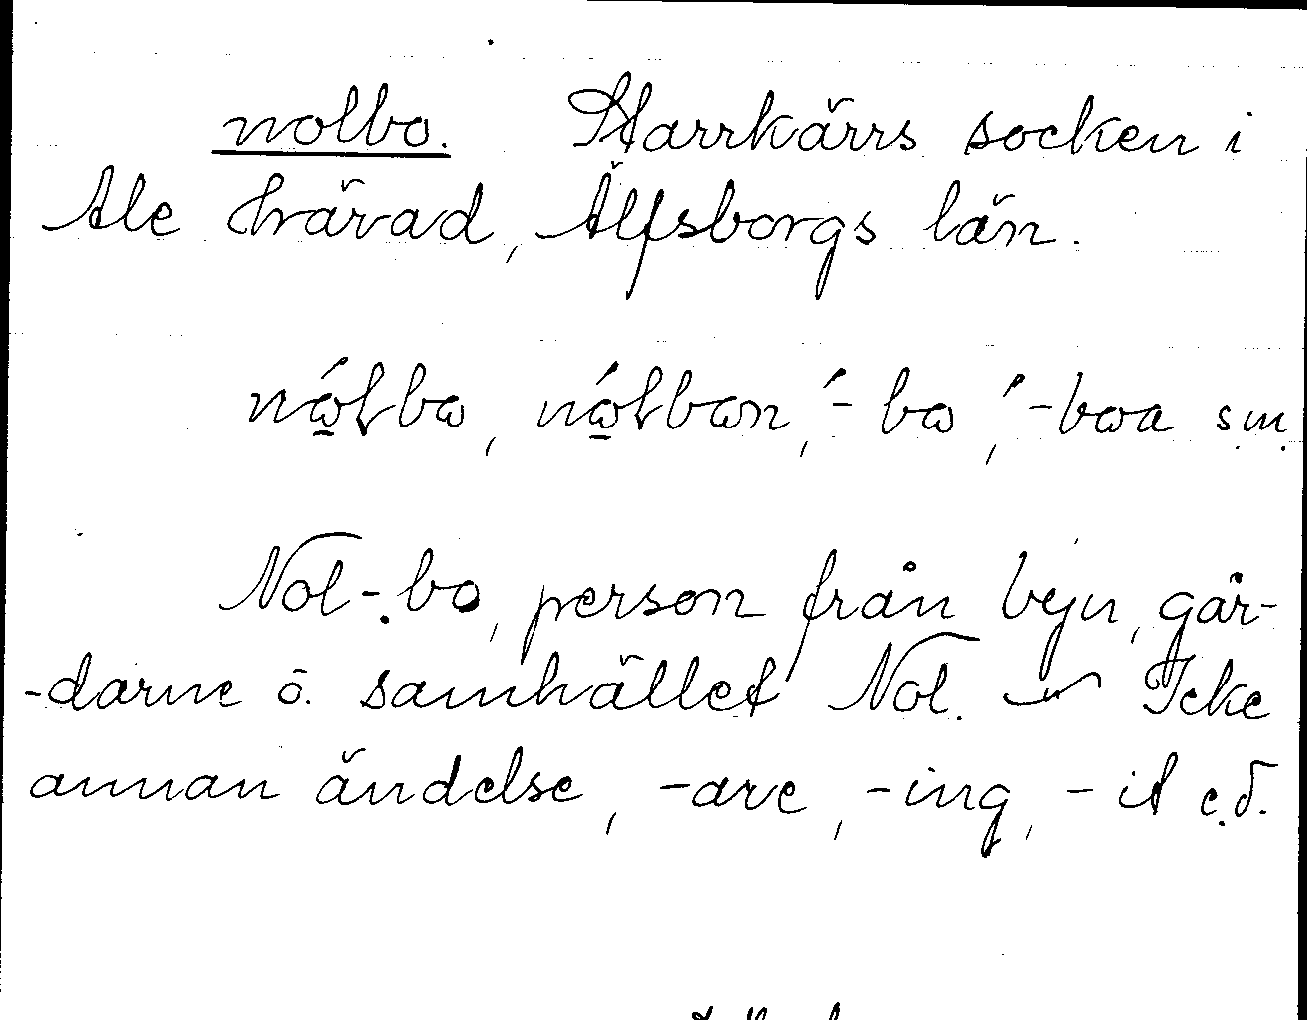 nolbo. Starrkärrs socken i
Ale härad, Älfsborgs län.
nó̲lbɷ, nó̲lbɷn, ´-bɷ, ´-bɷa s.m.
Nol-bo, person från byn, går-
-darne o. samhället Nol. Icke
annan ändelse, -are, -ing, -it e.d.